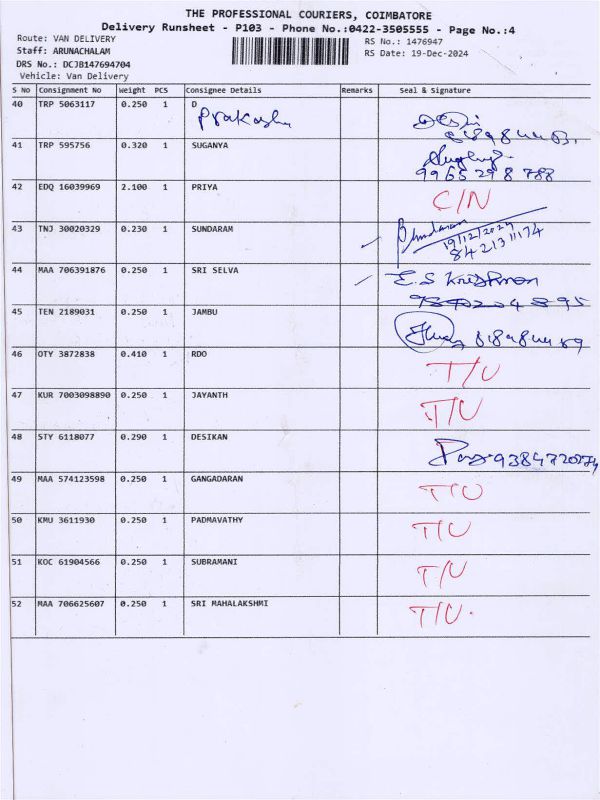 THE PROFESSIONAL COURIERS, COIMBATORE
Delivery Runsheet - P103 - Phone No.:0422-3505555 - Page No.:4
Route: VAN DELIVERY
RS No.: 1476947
Staff: ARUNACHALAM
RS Date: 19-Dec-2024
DRS No.: DCJB147694704
Vehicle: Van Delivery
S No Consignment No Weight PCS Consignee Details Remarks Seal & Signature
40 TRP 5063117 0.250 1 D
Prakash
41 TRP 595756 0.320 1 SUGANYA
9965298788
42 EDQ 16039969 2.100 1 PRIYA C/N
43 TNJ 30020329 0.230 1 SUNDARAM
19/12/2024
44 MAA 706391876 0.250 1 SRI SELVA E.S
45 TEN 2189031 0.250 1 JAMBU
46 OTY 3872838 0.410 1 RDO T/U
47 KUR 7003098890 0.250 1 JAYANTH T/U
48 STY 6118077 0.290 1 DESIKAN
49 MAA 574123598 0.250 1 GANGADARAN T/U
50 KMU 3611930 0.250 1 PADMAVATHY T/U
51 KOC 61904566 0.250 1 SUBRAMANI T/U
52 MAA 706625607 0.250 1 SRI MAHALAKSHMI T/U.